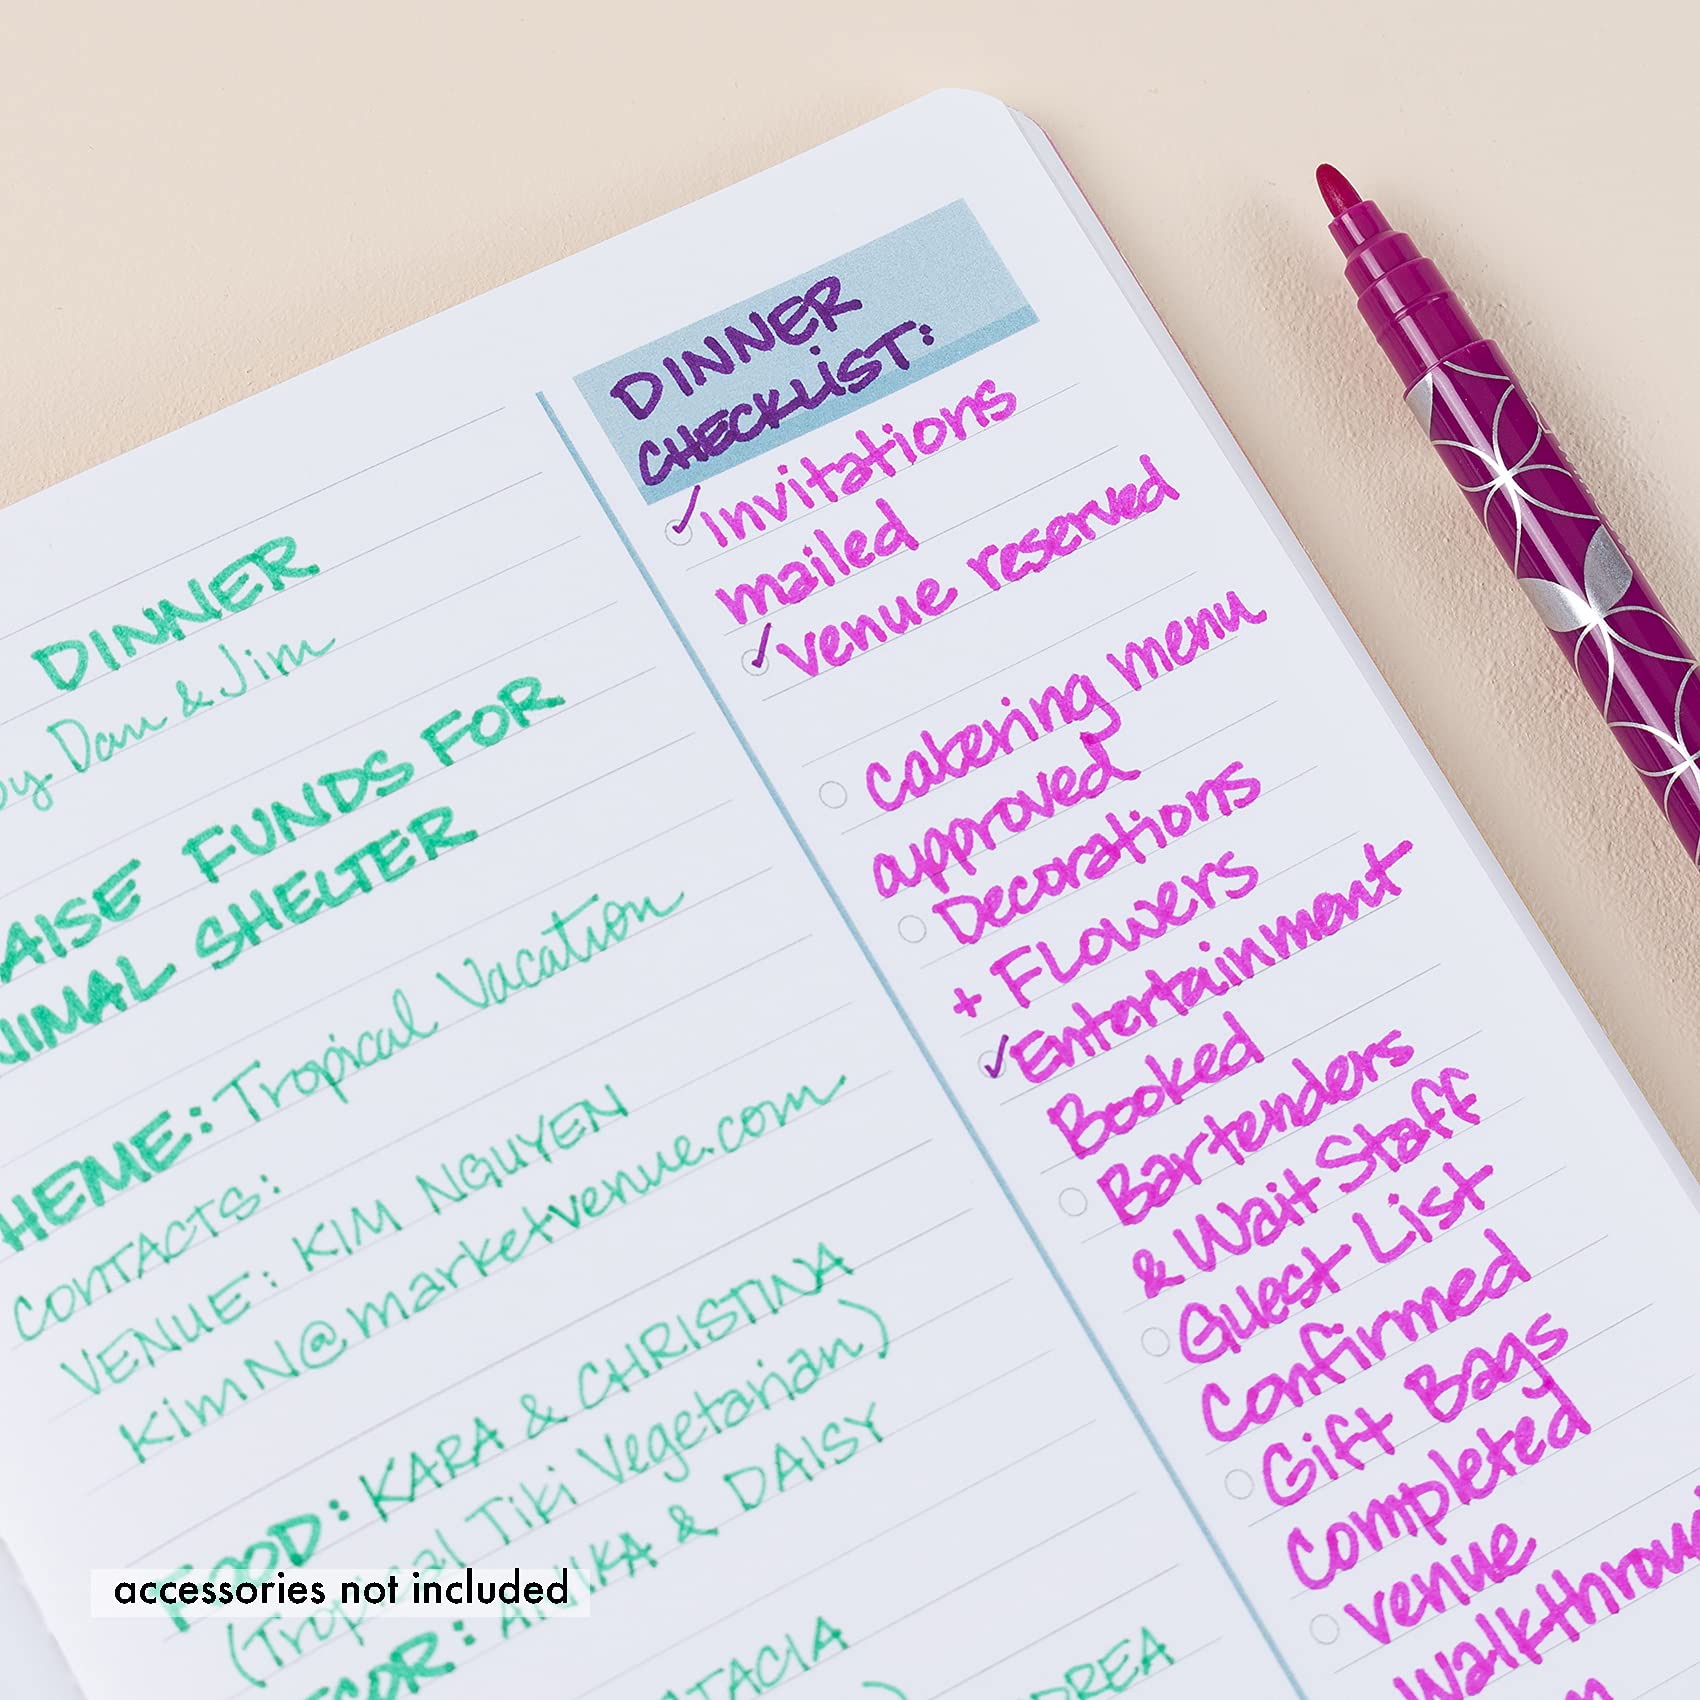 DINNER
by Dan & Jim
RAISE FUNDS FOR
ANIMAL SHELTER
THEME: Tropical Vacation
CONTACTS:
VENUE: KIM NGUYEN
KimN@marketvenue.com
FOOD: KARA & CHRISTINA
(Tropical Tiki Vegetarian)
DECOR: ANIKA & DAISY
DINNER
CHECKLIST:
✓ Invitations
mailed
✓ venue reserved
catering menu
approved
Decorations
+ Flowers
✓ Entertainment
Booked
Bartenders
& Wait Staff
Guest List
Confirmed
Gift Bags
Completed
venue
Walkthrough
accessories not included